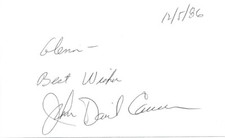 12/5/86
Glenn-
Best Wishes
John David